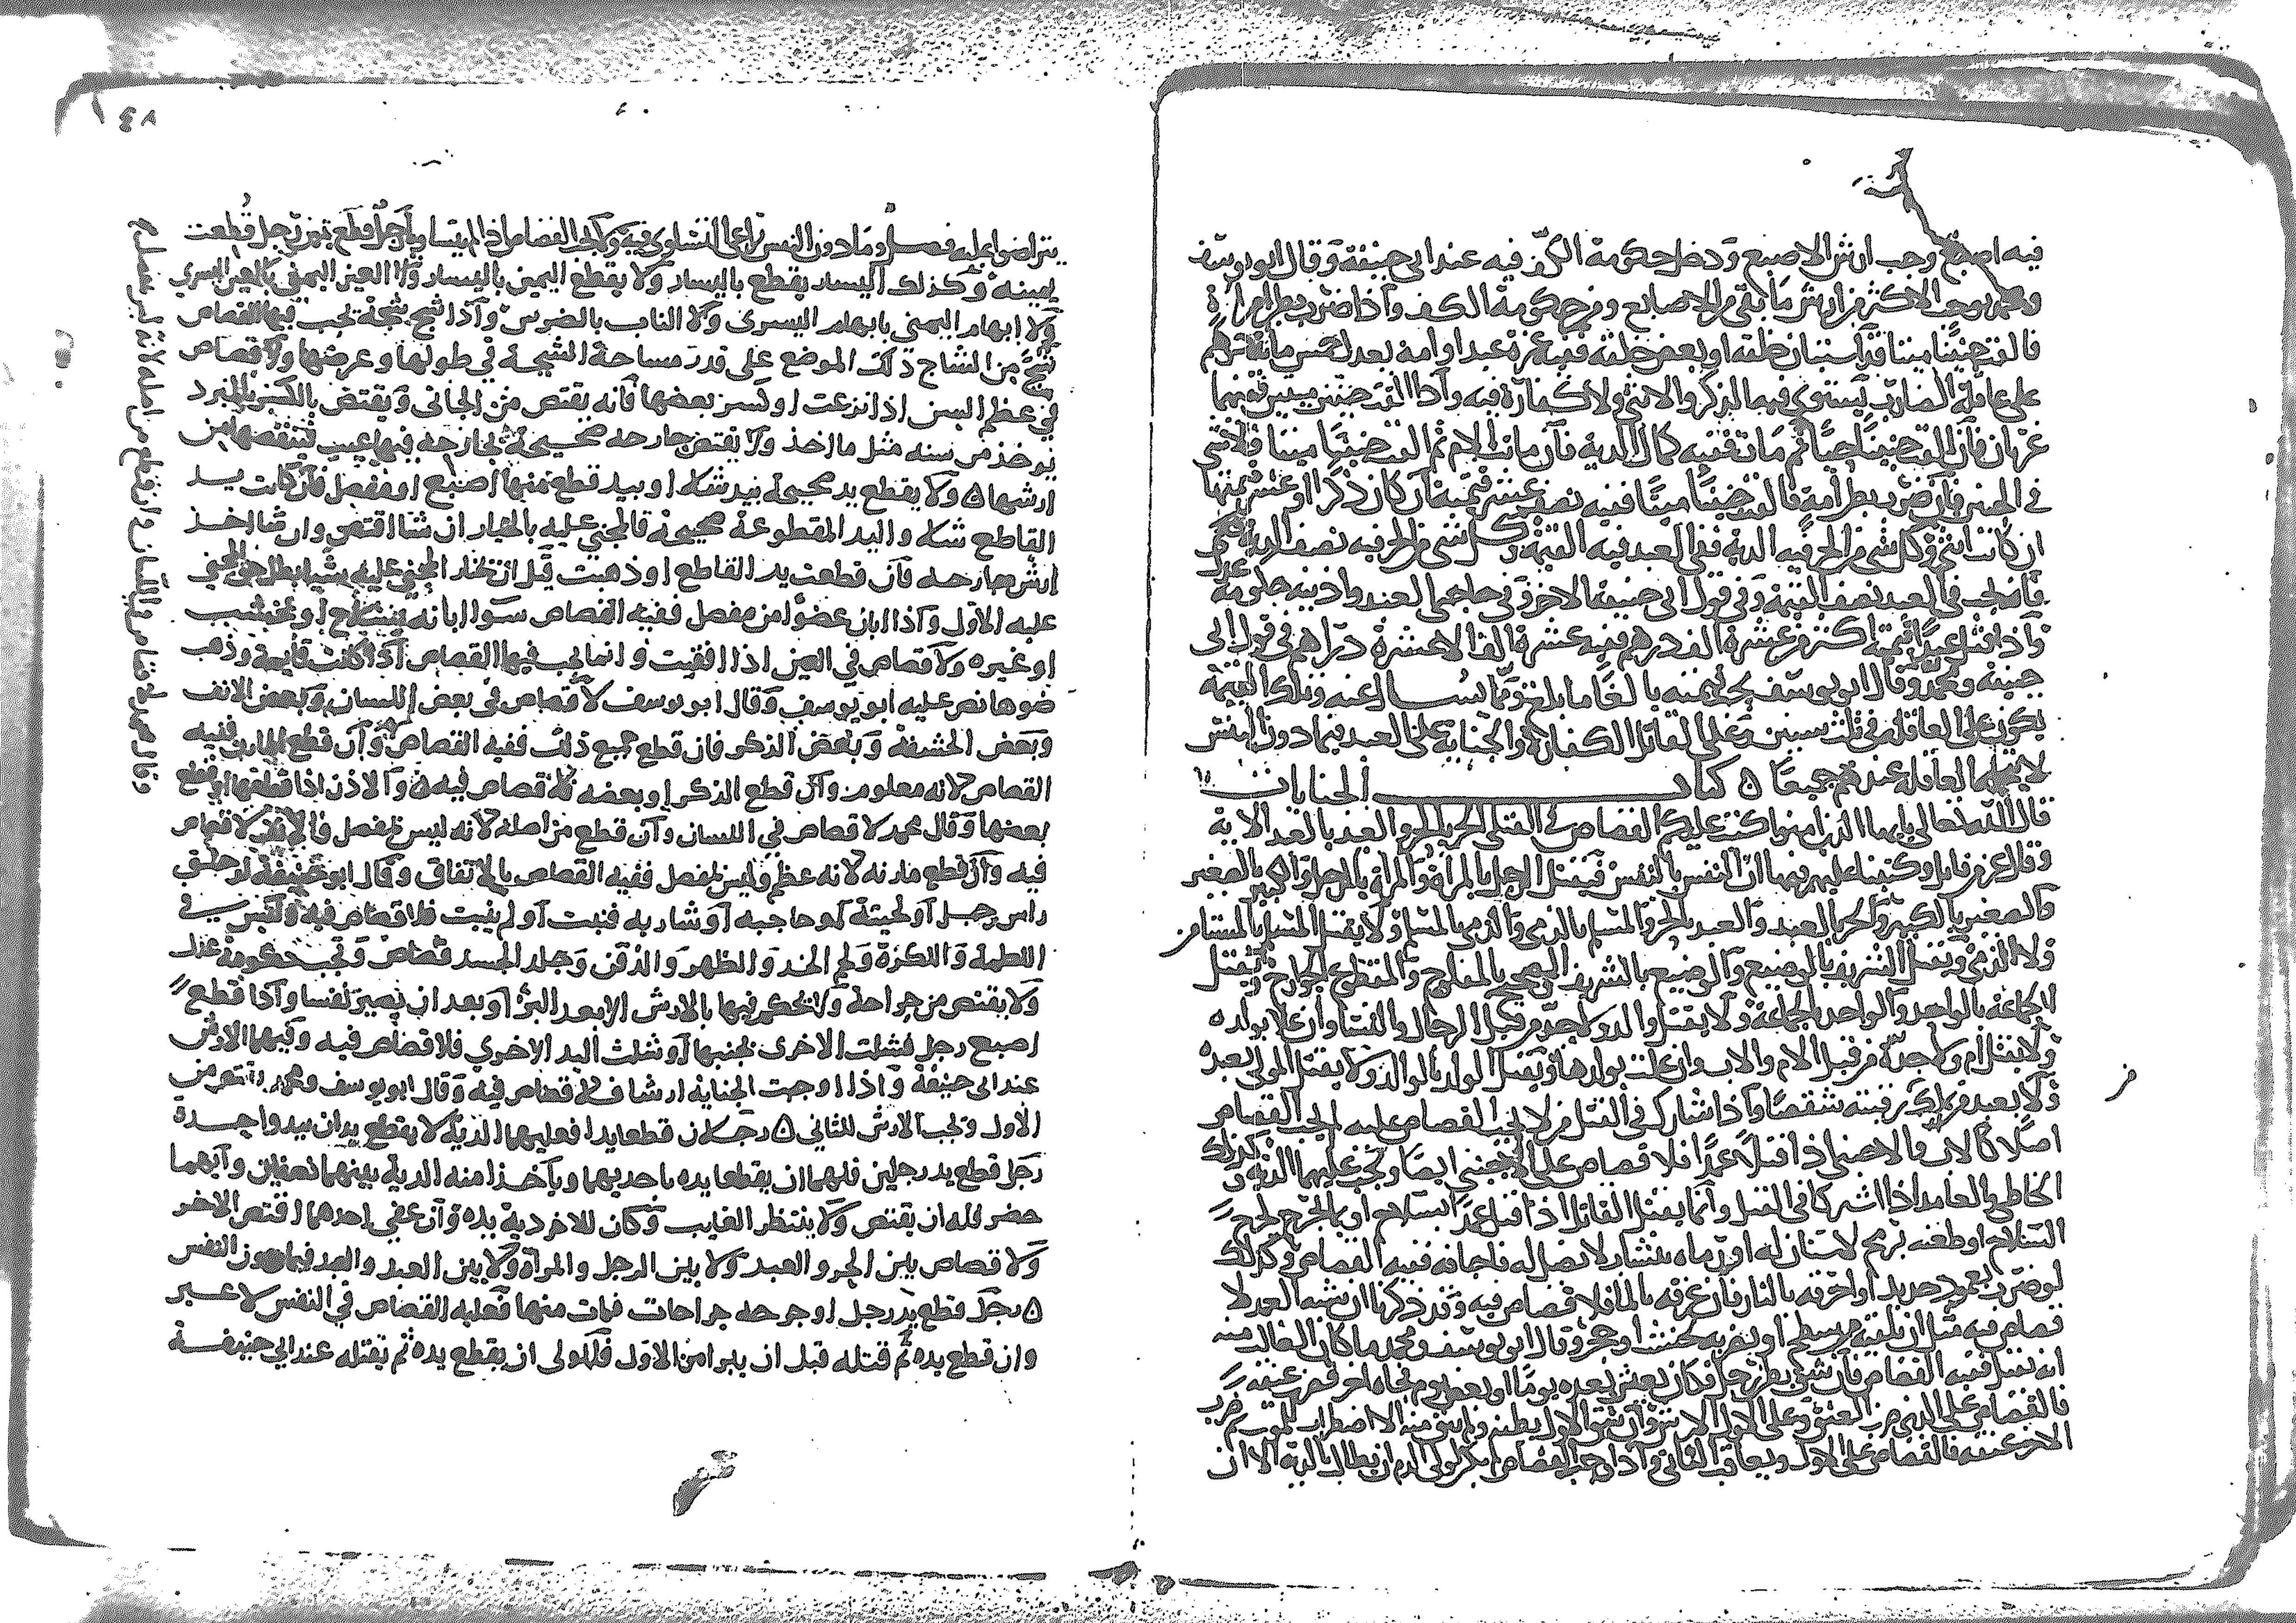 فيه اصبع وجب ارش الاصبع ودخل حكومة الكف فيه عند ابي حنيفة وقال ابو يوسف
ومحمد يجب الاكثر من ارش ما بقي من الاصابع ومن حكومة الكف واذا ضرب بطن امراة
فالقت جنينا ميتا قد استبان خلقه او بعض خلقه ففيه غرة عبد او امة يعدل خمس مائة درهم
على عاقلة الضارب يستوي فيها الذكر والانثى ولا كفارة فيه واذا القت جنينين ميتين ففيهما
غرتان فان القت جنينا حيا ثم مات ففيه كمال الدية فان ماتت الام ثم القت جنينا ميتا فلا شي
في الجنين فان ضرب بطن امة فالقت جنينا ميتا ففيه نصف عشر قيمته ان كان ذكرا او عشر قيمتها
ان كانت انثى وكل شي من الحر فيه الدية ففي العبد فيه القيمة وكل شي من الحر فيه نصف الدية
في العبد نصف القيمة وفي قول ابي حنيفة الاخر في حاجبي العبد واذنيه حكومة عدل
واذا قتل عبدا قيمته اكثر من عشرة الف درهم ففيه عشرة الف الا عشرة دراهم في قول ابي
حنيفة ومحمد وقال ابو يوسف يجب قيمته بالغا ما بلغ وتلك القيمة
يكون على العاقلة في ثلث سنين وعلى القاتل الكفارة والجناية على العبد فيما دون النفس
لا تحملها العاقلة عندهم جميعا ٥ كتاب الجنايات
قال الله تعالى يايها الذين امنوا كتب عليكم القصاص في القتلى الحر بالحر والعبد بالعبد الاية
وقال عز من قايل وكتبنا عليهم فيها ان النفس بالنفس فيقتل الرجل بالمراة والمراة بالرجل والكبير بالصغير
والصغير بالكبير والحر بالعبد والعبد بالحر والمسلم بالذمي والذمي بالمسلم ولا يقتل المسلم بالمستامن
ولا الذمي ويقتل الشريف بالوضيع والوضيع بالشريف الصحيح بالمفلوج والمقطع الجوارح ويقتل
الجماعة بالواحد والواحد بالجماعة ولا يقتل والد ولا جد من قبل الرجال والنسا وان علا بولده
ولا يقتل ام ولا جدة من قبل الام والاب وان علت بولدها ويقتل الولد بالوالد ولا يقتل المولى بعبده
ولا بعبد ملك من رقبته شقصا واذا شارك في القتل من لا يجب القصاص عليه لم يجب القصاص
اصلا كالاب والاجنبي اذا قتلا عمدا فلا قصاص على الاجنبي ايضا وتجب عليهما الدية وكذلك
الخاطي والعامد اذا اشتركا في القتل وانما يقتل القاتل اذا قتل عمدا بسلاح او ما
السلاح او طعنه برمح لا سنان له او رماه بنشاب لا نصل له فاجافه ففيه القصاص وكذلك
لو ضرب بعمود حديد او احرقه بالنار فان غرقه بالما فلا قصاص فيه وقد ذكرنا ان شبه العمد لا
قصاص فيه مثل ان يلقيه من سطح او يضربه بخشب او حجر وقال ابو يوسف ومحمد ما كان الغالب منه
انه يقتل ففيه القصاص فان شق بطن رجل فكان يعيش بعده يوما او بعض يوم فجاه اخر فضرب عنقه
فالقصاص على الذي ضرب العنق وعلى الاول الارش وان شق الاول بطنه ولم يبق منه الا اضطراب للموت ثم ضرب
الاخر عنقه فالقصاص على الاول ويعاقب الثاني واذا وجب القصاص لم يكن لولي الدم ان يطالب بالدية الا ان
٨٤
يتراضوا عليه فصل وما دون النفس يراعى التساوي فيه ولا يجب القصاص اذا لم يتساويا رجل قطع يمين رجل قطعت
يمينه وكذلك اليسار يقطع باليسار ولا يقطع اليمين باليسار ولا العين اليمنى بالعين اليسري
ولا ابهام اليمنى بابهام اليسرى ولا الناب بالضرس واذا شج شجة يجب فيها القصاص
شج من الشاج ذلك الموضع على قدر مساحة الشجة في طولها وعرضها ولا قصاص
في عظم السن اذا نزعت او كسر بعضها فانه يقتص من الجاني ويقتص بالكسر بالمبرد
يوخذ من سنه مثل ما اخذ ولا يقتص جارحه صحيحة بجارحه فيها عيب ينقصها من
ارشها ٥ ولا يقطع يد صحيحة بيد شلا او بيد قطع منها اصبع او مفصل فان كانت يد
القاطع شلا واليد المقطوعة صحيحة فالمجني عليه بالخيار ان شا اقتص وان شا اخذ
ارش جارحه فان قطعت يد القاطع او ذهبت قبل ان يختار المجني عليه شيا بطل حق المجني
عليه الاول واذا ابان عضوا من مفصل ففيه القصاص سوا ابانه بسلاح او بخشب
او غيره ولا قصاص في العين اذا افقيت وانما يجب فيها القصاص اذا كانت قايمة وذهب
ضوها نص عليه ابو يوسف وقال ابو يوسف لا قصاص في بعض اللسان وبعض الانف
وبعض الحشفة وبعض الذكر فان قطع جميع ذلك ففيه القصاص وان قطع المارن ففيه
القصاص لانه معلوم وان قطع الذكر او بعضه فلا قصاص فيه ٥ والاذن اذا قطعها او قطع
بعضها وقال محمد لا قصاص في اللسان وان قطع من اصله لانه ليس بمفصل والانف لا قصاص
فيه وان قطع مارنه لانه عظم وليس بمفصل ففيه القصاص بالاتفاق وقال ابو حنيفة لو حلق
راس رجل او لحيته او حاجبه او شاربه فنبت او لم ينبت فلا قصاص فيه وليس في
اللطمة واللكزة ولحم الخد والظهر والذقن وجلد الجسد قصاص وتجب حكومة عدل
ولا يقتص من جراحة ولا يحكم فيها بالارش الا بعد البرؤ او بعد ان يصير نفسا واذا قطع
اصبع رجل فشلت الاخرى بجنبها او شلت اليد الاخري فلا قصاص فيه وفيهما الارش
عند ابي حنيفة واذا اوجبت الجناية ارشا فلا قصاص فيه وقال ابو يوسف ومحمد يقتص من
الاول وتجب الارش للثاني ٥ رجلان قطعا يدا فعليهما الدية لا يقطع يدان بيد واحدة
رجل قطع يد رجلين فلهما ان يقطعا يده باحديهما وياخذا منه الدية بينهما نصفين وايهما
حضر فله ان يقتص ولا ينتظر الغايب وكان للاخر دية يده وان عفي احدهما اقتص الاخر
ولا قصاص بين الحر والعبد ولا بين الرجل والمراة ولا بين العبد والعبد فيما دون النفس
٥ رجل قطع يد رجل او جرحه جراحات فمات منها فعليه القصاص في النفس لا غير
وان قطع يده ثم قتله قبل ان يبرا من الاول فللولى ان يقطع يده ثم يقتله عند ابي حنيفة